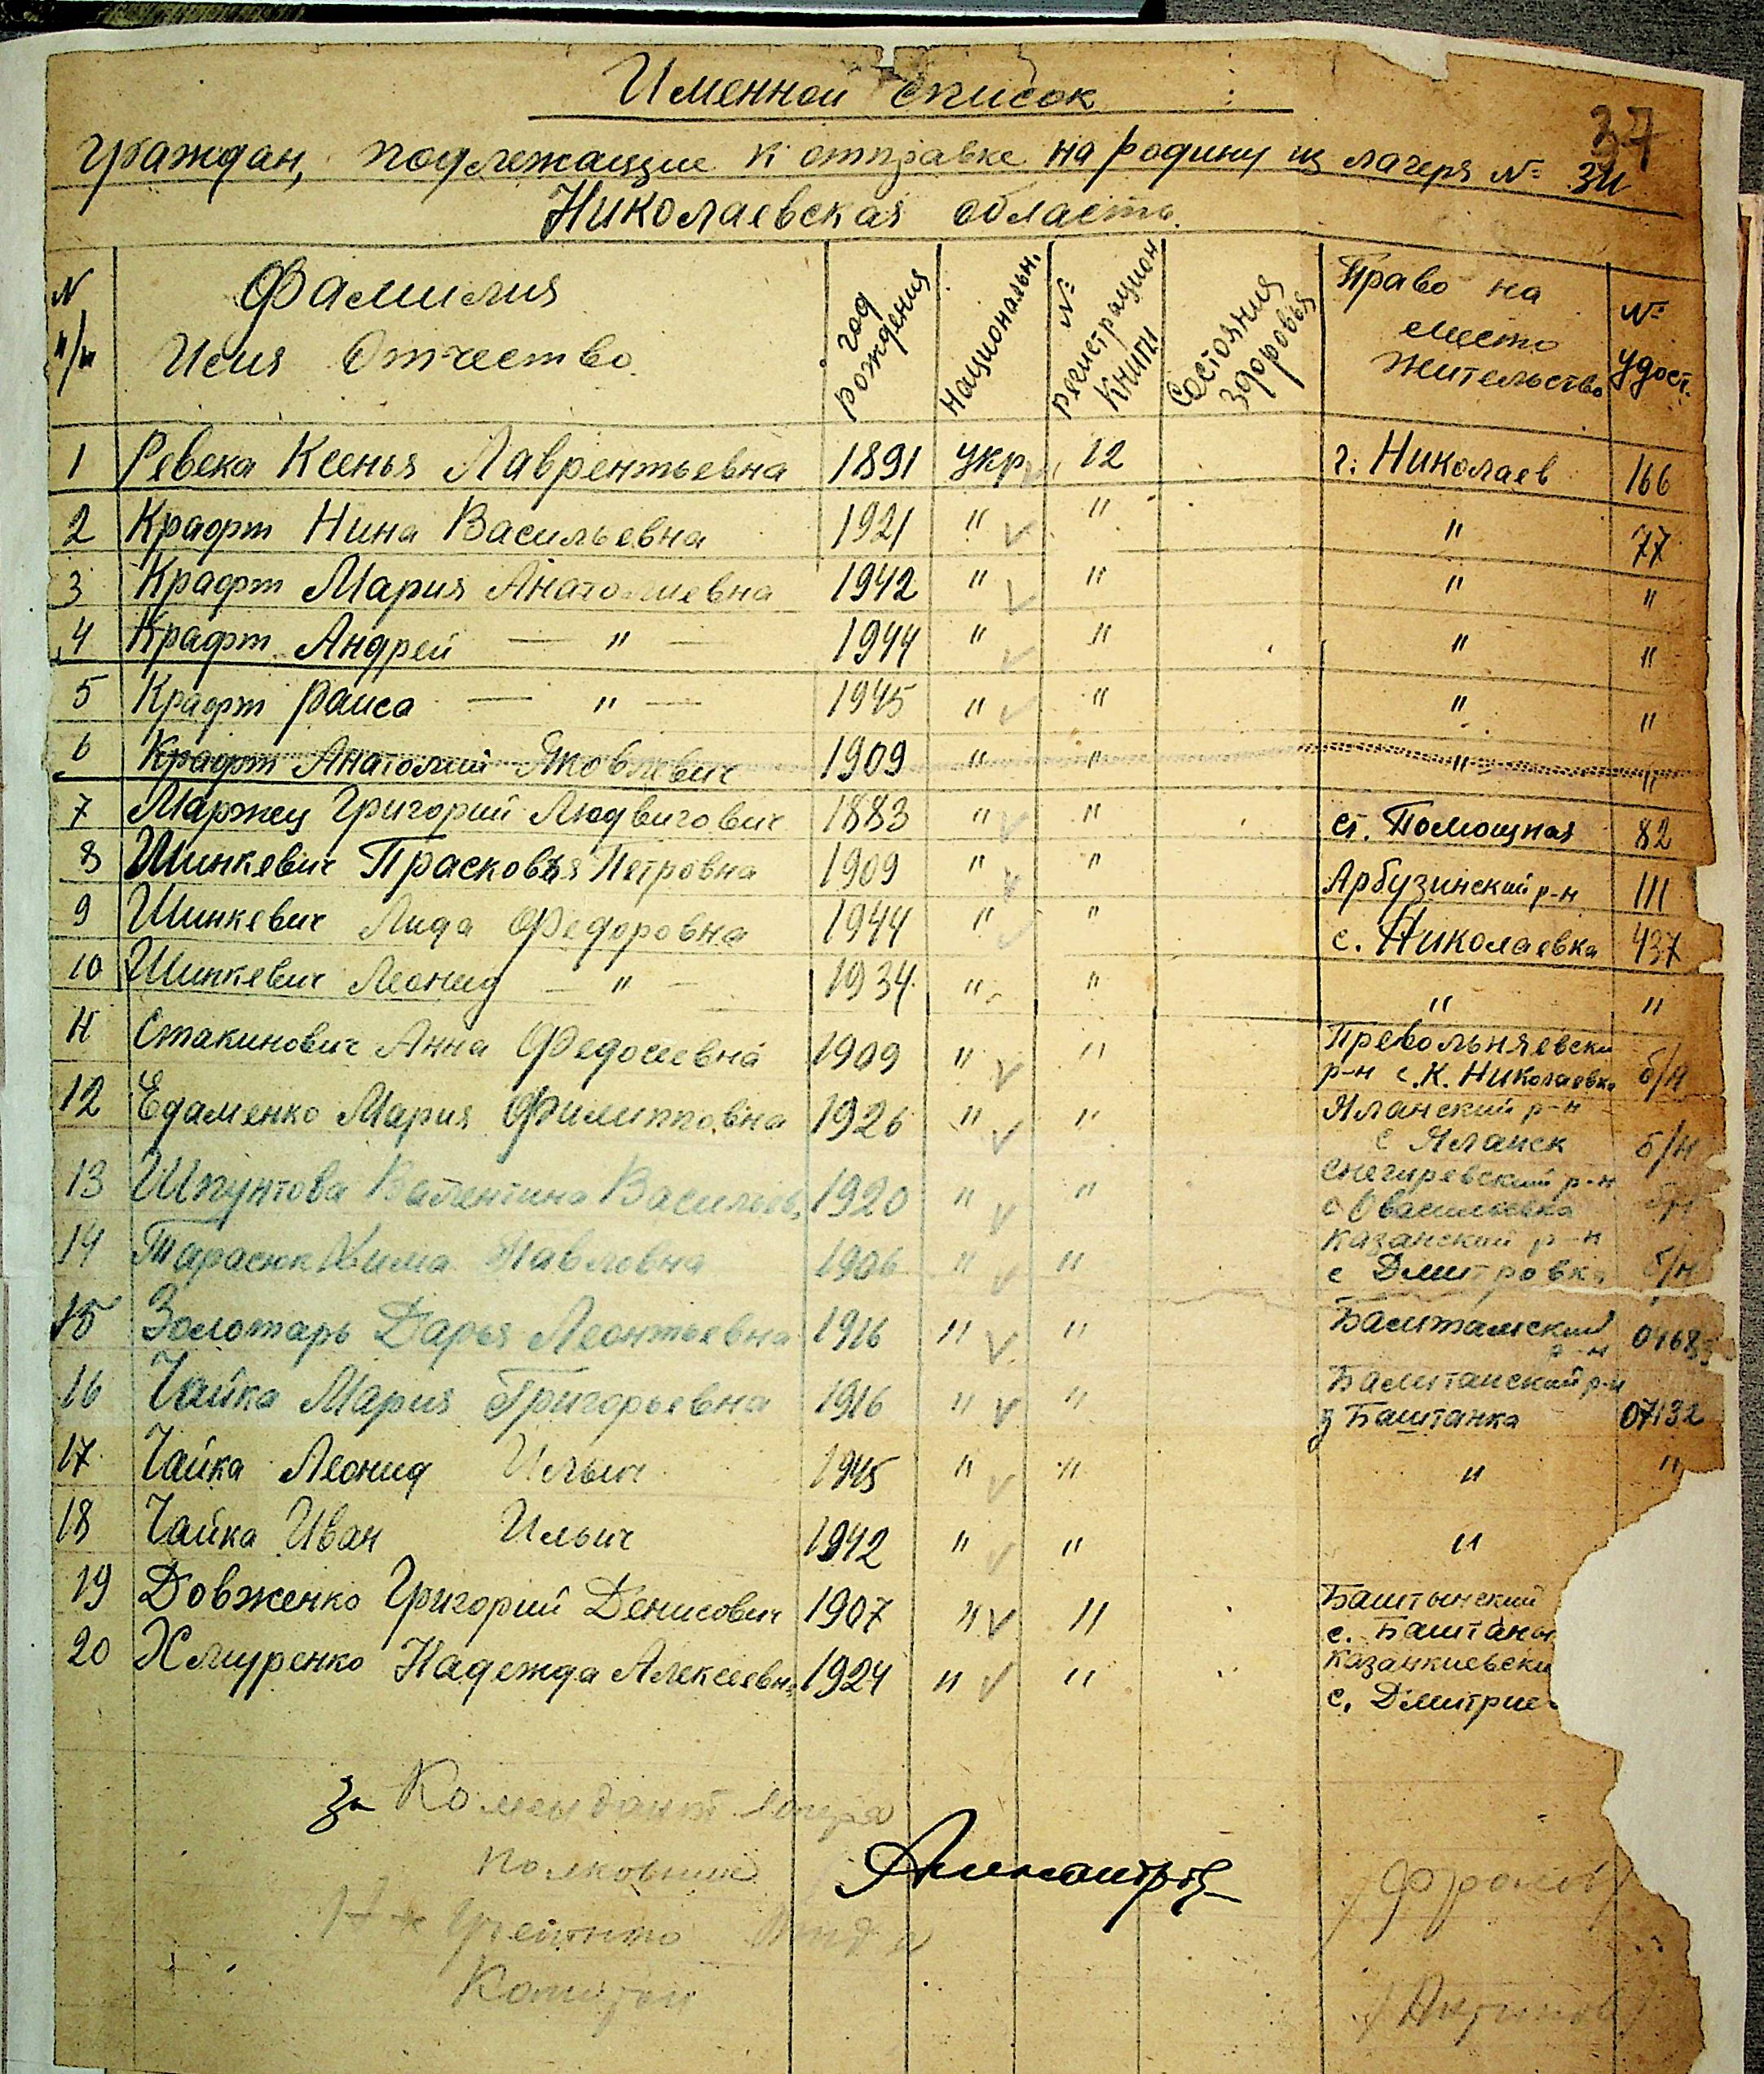 Именной список
37
Граждан, подлежащие к отправке на родину из лагеря №
Николаевская область.
N п/п Фамилия Имя Отчество год рождения Национальн. № регистрацион книги Состояния здоровья Право на место жительство № удост.
1 Ревека Ксенья Лаврентьевна 1891 укр 12 г. Николаев 166
2 Крафт Нина Васильевна 1921 " " " 77
3 Крафт Мария Анатолиевна 1942 " " " "
4 Крафт Андрей — " — 1944 " " " "
5 Крафт Раиса — " — 1945 " " " "
6 Крафт Анатолий Яковлевич 1909 " " " "
7 Маржец Григорий Людвигович 1883 " " ст. Помощная 82
8 Шинкевич Прасковья Петровна 1909 " " Арбузинский р-н 111
9 Шинкевич Лида Федоровна 1944 " " с. Николаевка 437
10 Шинкевич Леонид — " — 1934 " " " "
11 Стакинович Анна Федосеевна 1909 " " Превольняевски
р-н с. К. Николаевка б/н
12 Едаменко Мария Филипповна 1926 " " Яланский р-н
с Яланск б/н
13 Шпунтова Валентина Васильев. 1920 " " Снегиревский р-н
14 Тарасюк Хима Павловна 1906 " " Казанский р-н
с Дмитровка б/н
15 Золотарь Дарья Леонтьевна 1916 " " Баштанский
р-н
16 Чайка Мария Григорьевна 1916 " " Баштанский р-н
Баштанка 07132
17 Чайка Леонид Ильич 1945 " " " "
18 Чайка Иван Ильич 1942 " " "
19 Довженко Григорий Денисович 1907 " " Баштынский
с. Баштан
20 Хмуренко Надежда Алексеевн. 1924 " " Казанкиевски
с. Дмитрие
за Комендант лагеря
полковник
Капитан